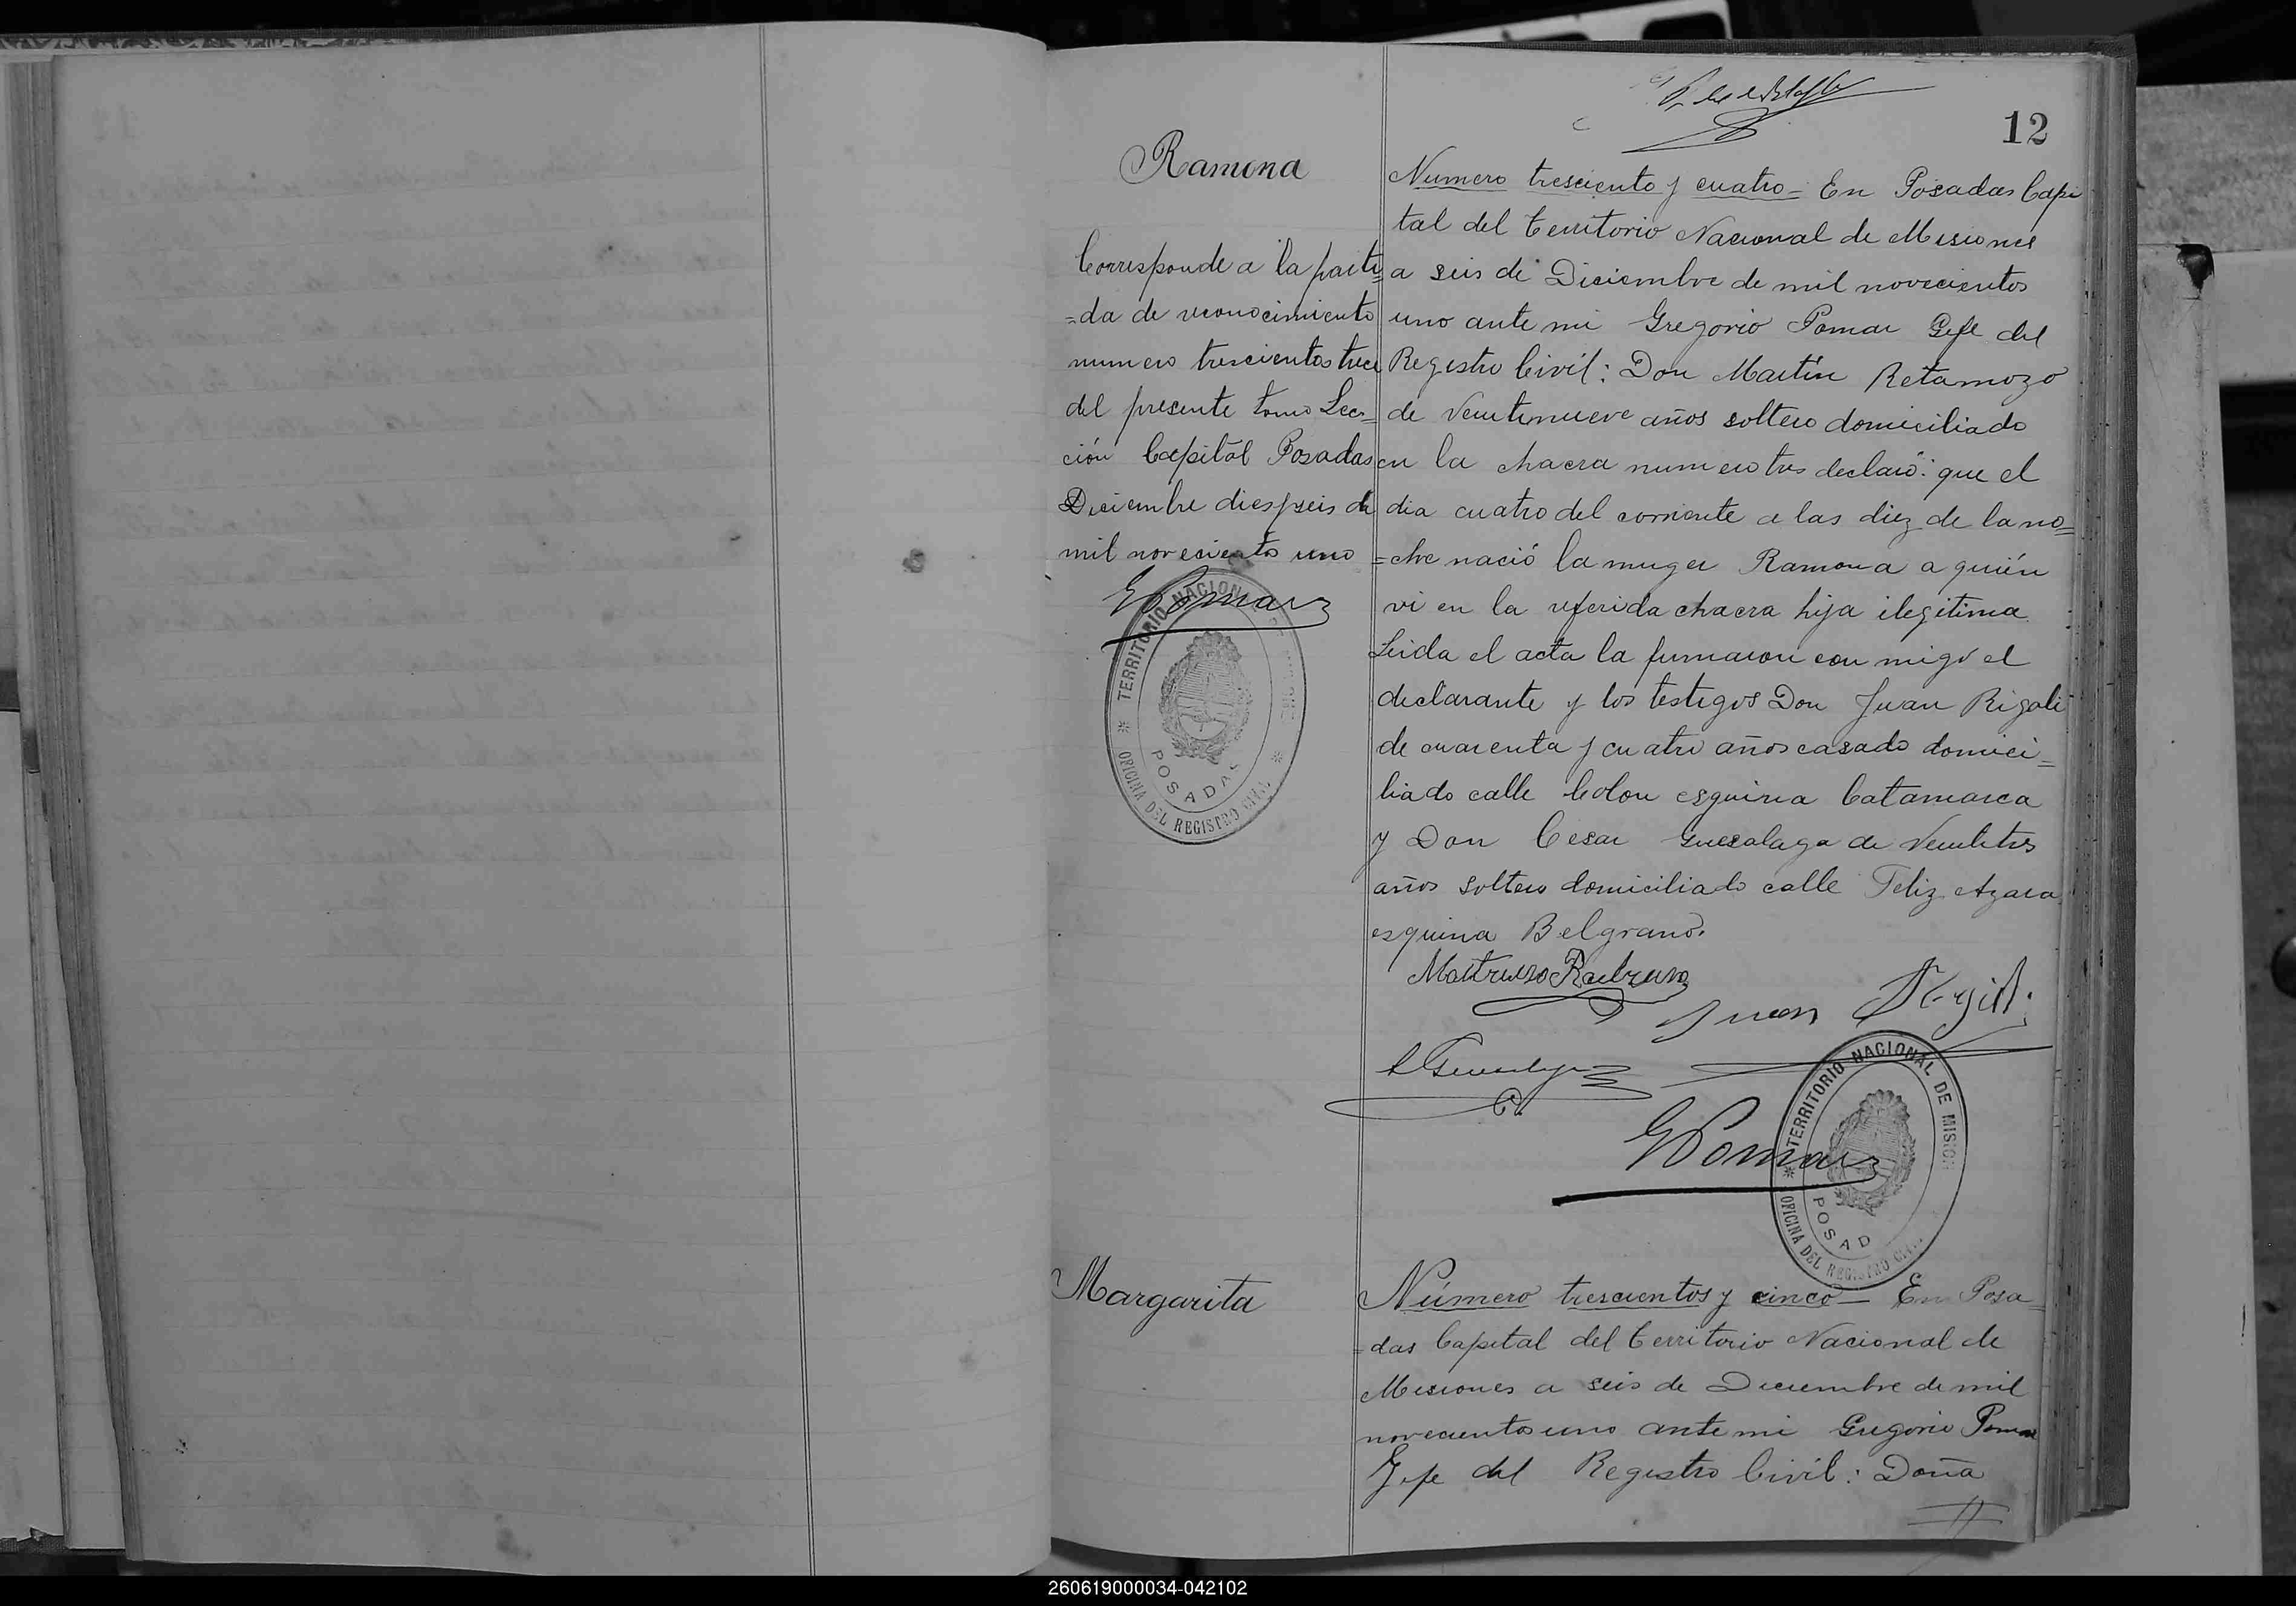 12
Ramona
Corresponde a la parti=
=da de reconocimiento
numero trescientos trece
del presente tomo Sec=
ción Capital Posadas
Diciembre diesyseis de
mil novecientos uno
GPomar
TERRITORIO NACIONAL
POSADAS
OFICINA DEL REGISTRO CIVIL
Numero tresciento y cuatro= En Posadas Capi
tal del territorio Nacional de Misiones
a seis de Diciembre de mil novecientos
uno ante mi Gregorio Pomar Gefe del
Registro Civil: Don Martín Retamozo
de Veintinueve años soltero domiciliado
en la chacra numero tres declaró: que el
dia cuatro del corriente a las diez de la no=
=che nació la muger Ramona a quién
vi en la referida chacra hija ilegitima
Leida el acta la firmaron con migo el
declarante y los testigos Don Juan Rigoli
de cuarenta y cuatro años casado domici=
liado calle Colon esquina Catamarca
y Don Cesar Guesalaga de Veintitres
años soltero domiciliado calle Feliz Azara
esquina Belgrano.
Juan
GPomar
TERRITORIO NACIONAL DE MISION
POSAD
OFICINA DEL REGISTRO CIVIL
Margarita
Número trescientos y cinco— En Posa=
=das Capital del territorio Nacional de
Misiones a seis de Diciembre de mil
novecientos uno ante mi Gregorio Pomar
Jefe del Registro Civil: Doña
260619000034-042102